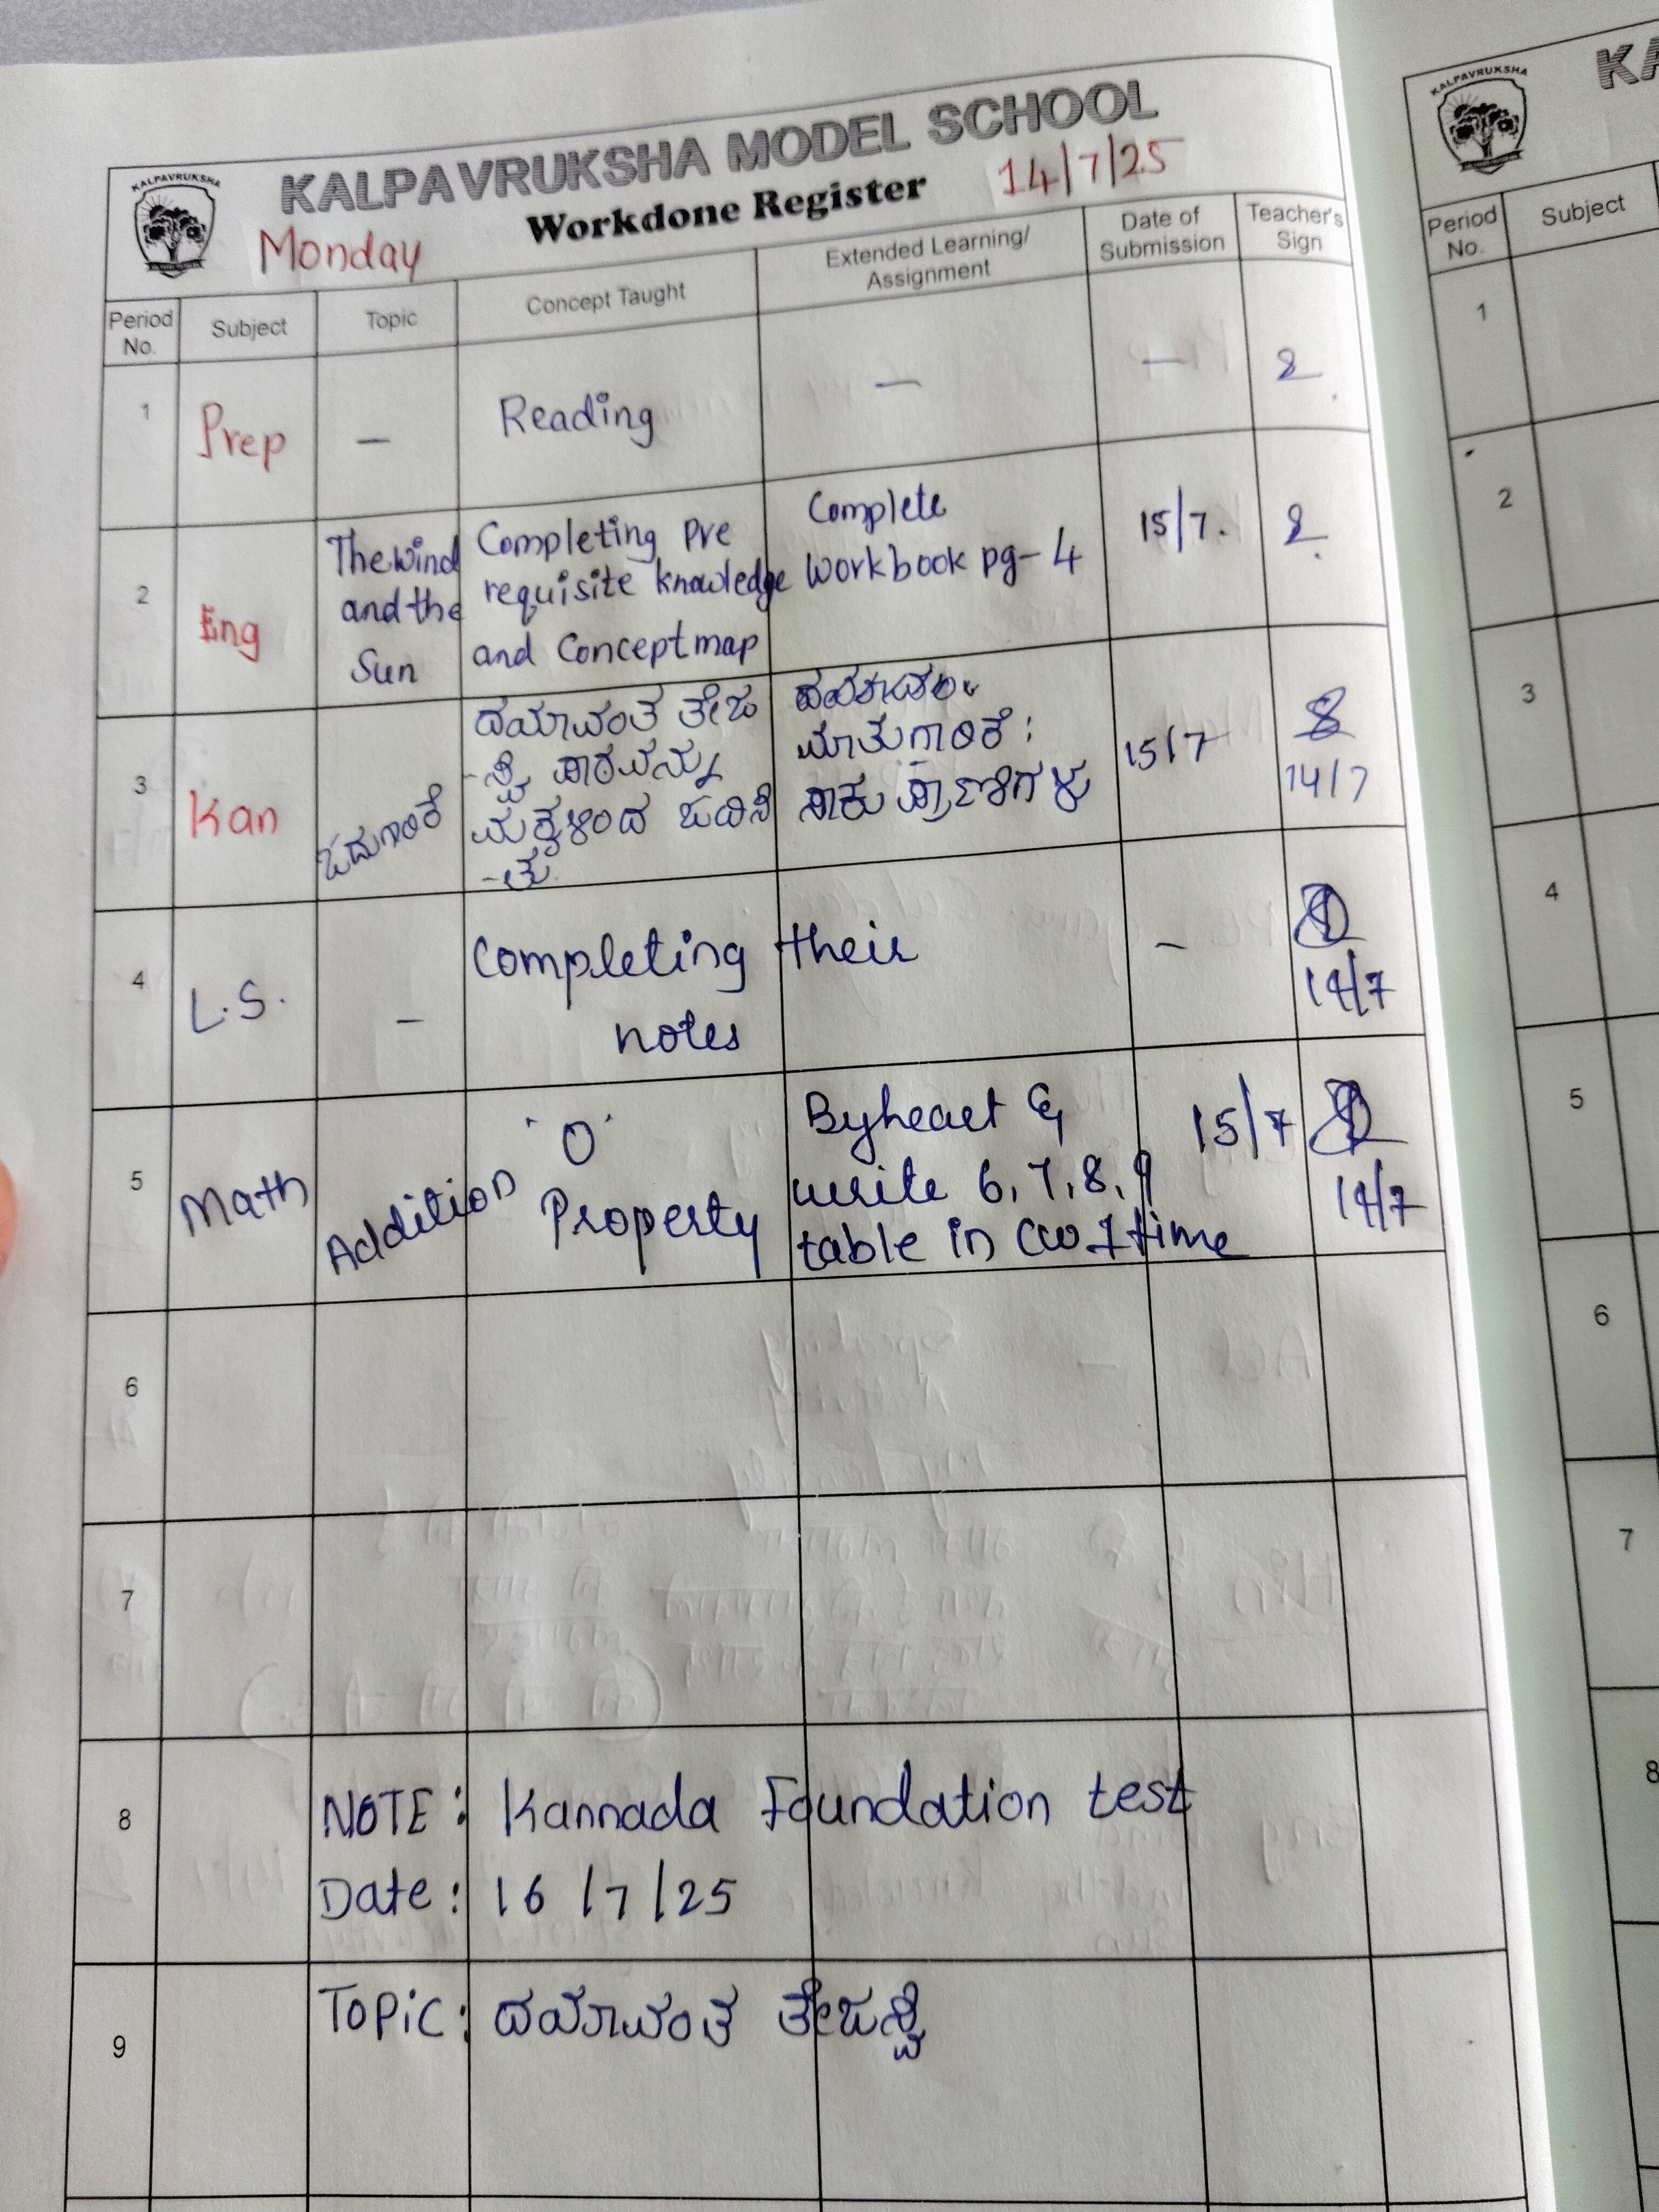 KALPAVRUKSHA
KALPAVRUKSHA MODEL SCHOOL
Workdone Register
14/7/25
Monday
Period No.
Subject
Topic
Concept Taught
Extended Learning/
Assignment
Date of
Submission
Teacher's
Sign
1
Prep
–
Reading
–
–
2
Eng
The wind
and the
Sun
Completing Pre
requisite knowledge
and Concept map
Complete
Workbook pg- 4
15/7.
3
Kan
ಓದುಗಾರಿಕೆ
ದಯಾವಂತ ತೇಜ
-ಸ್ವಿ ಪಾಠವನ್ನು
ಮಕ್ಕಳಿಂದ ಓದಿಸಿ
-ತು.
ಮಾತುಗಾರಿಕೆ:
ಸಾಕು ಪ್ರಾಣಿಗಳು
15/7
14/7
4
L.S.
–
Completing their
notes
–
14/7
5
Math
Addition
'0'
Property
Byheart &
write 6, 7, 8, 9
table in CW 1 time
15/7
14/7
6
7
8
NOTE: Kannada Foundation test
Date: 16/7/25
9
Topic: ದಯಾವಂತ ತೇಜಸ್ವಿ
KALPAVRUKSHA
KA
Period
No.
Subject
1
2
3
4
5
6
7
8